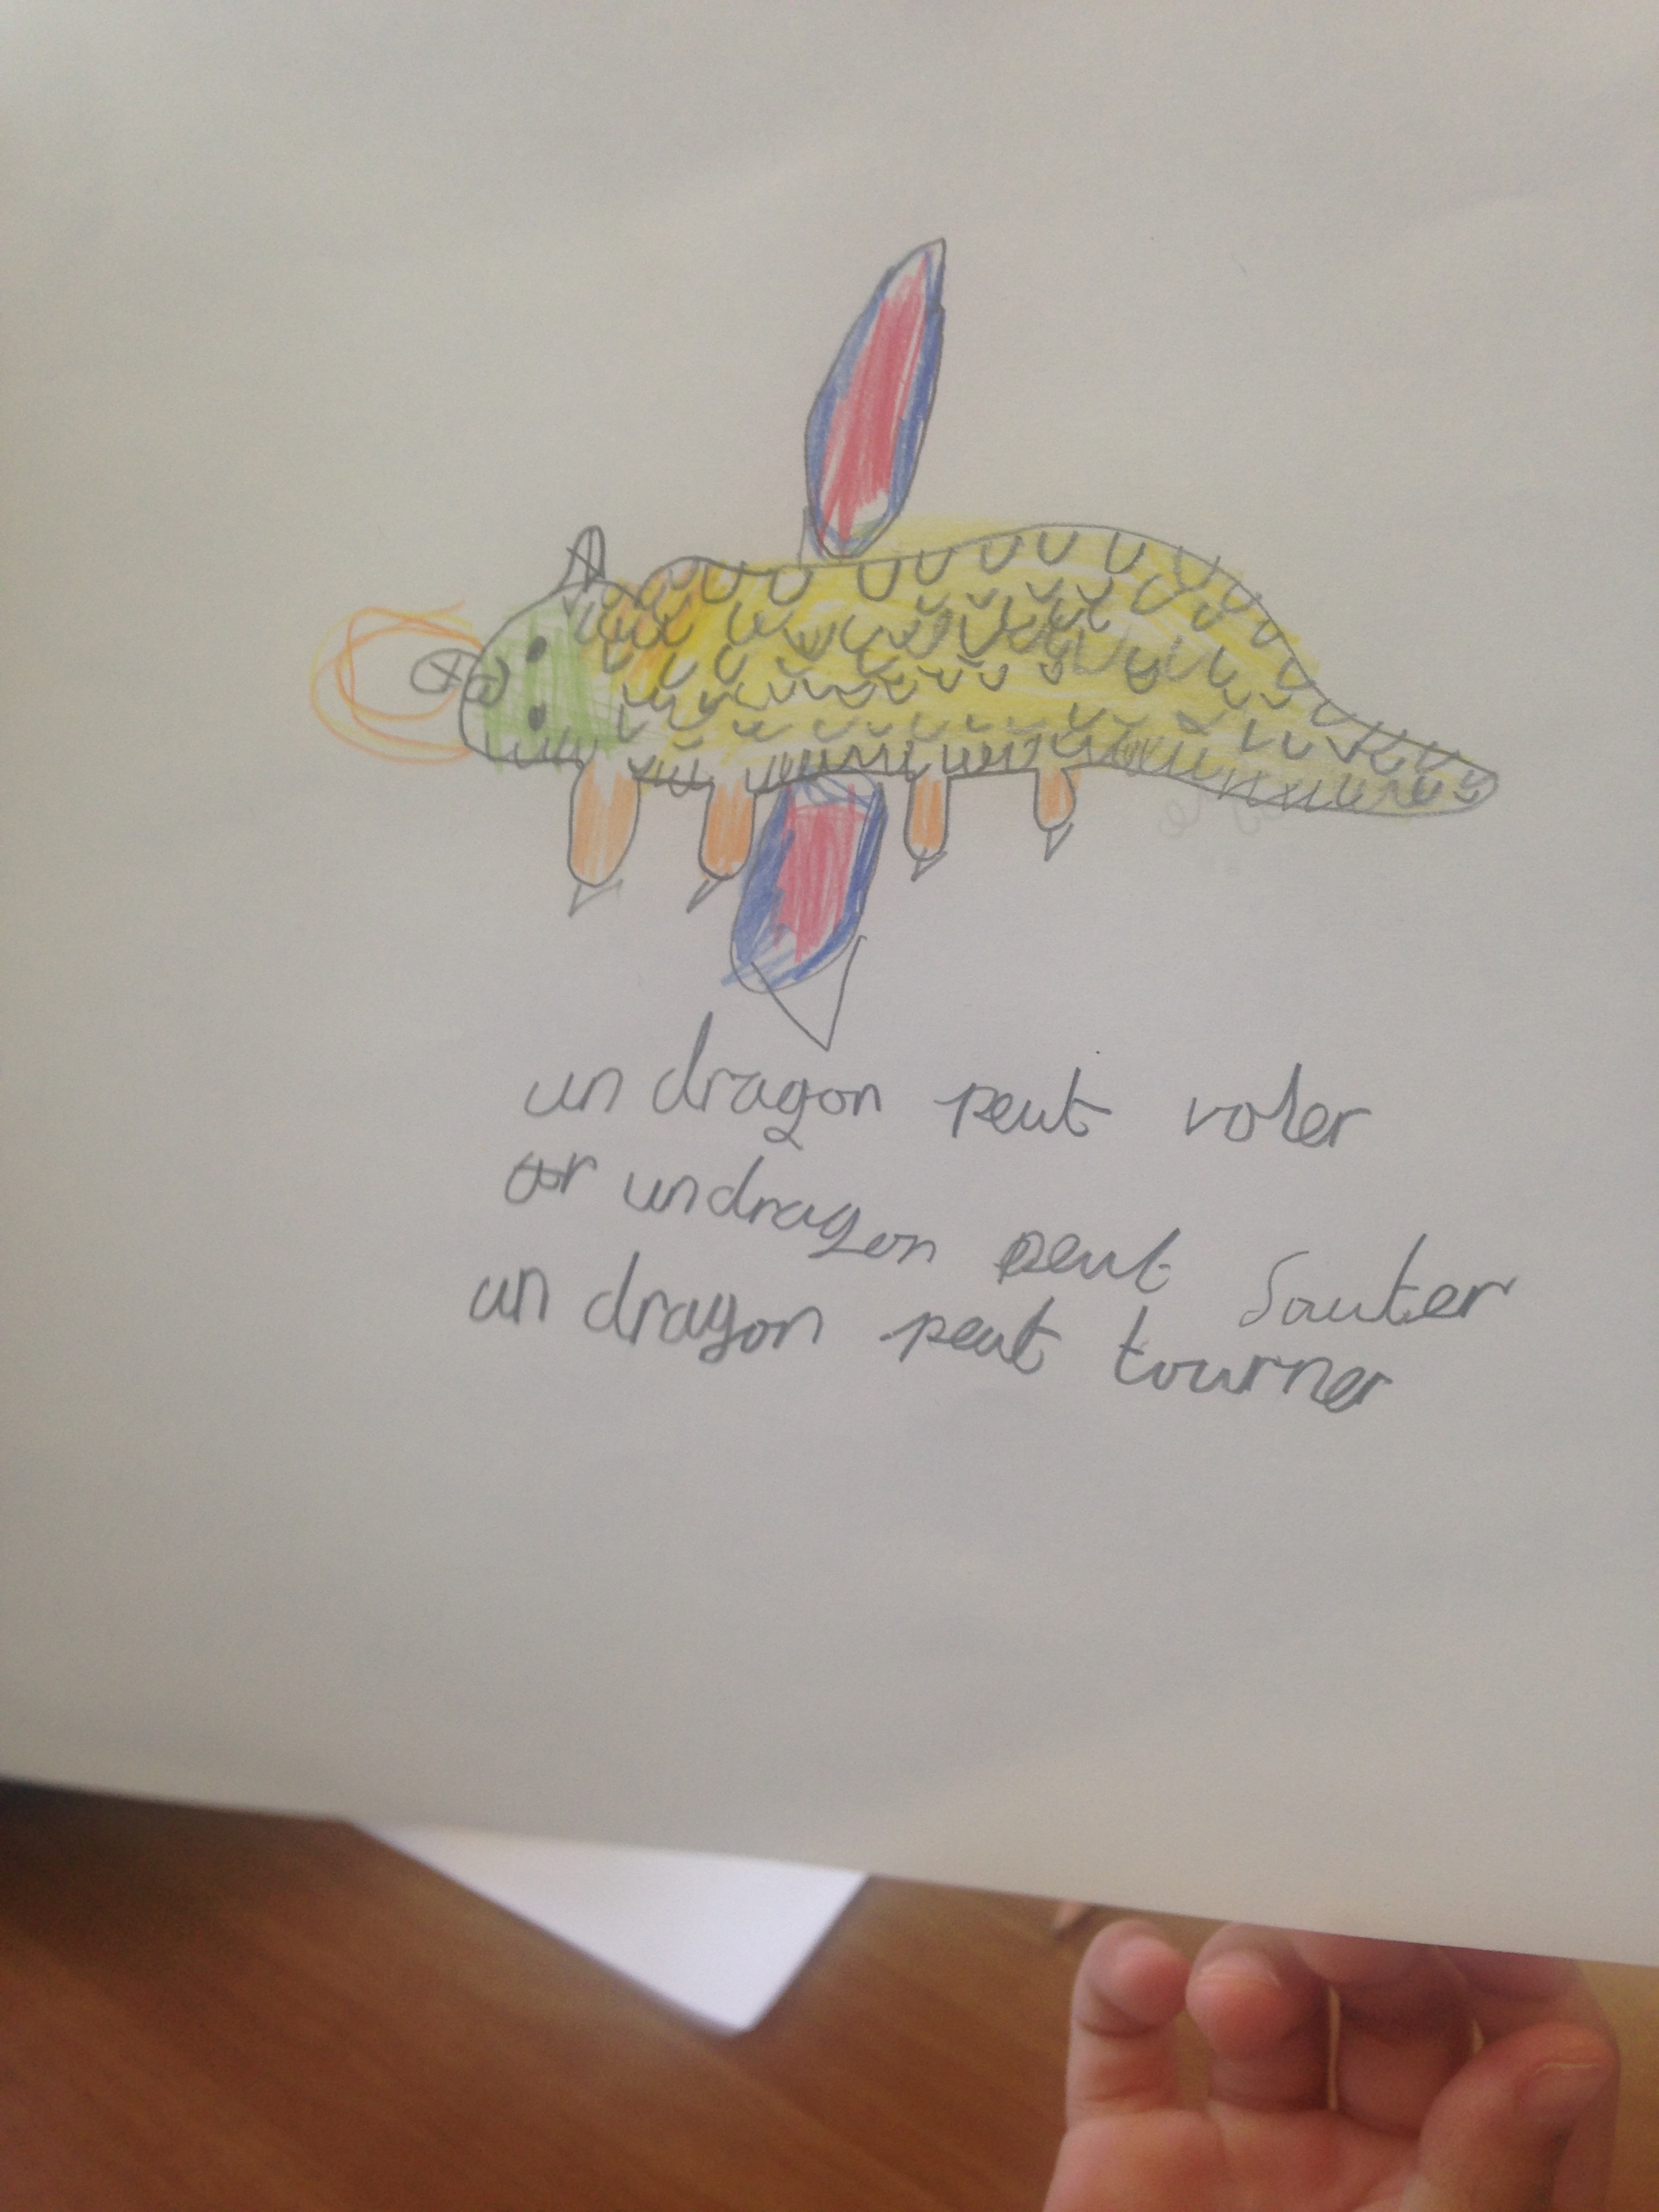 un dragon peut voler
un dragon peut sauter
un dragon peut tourner